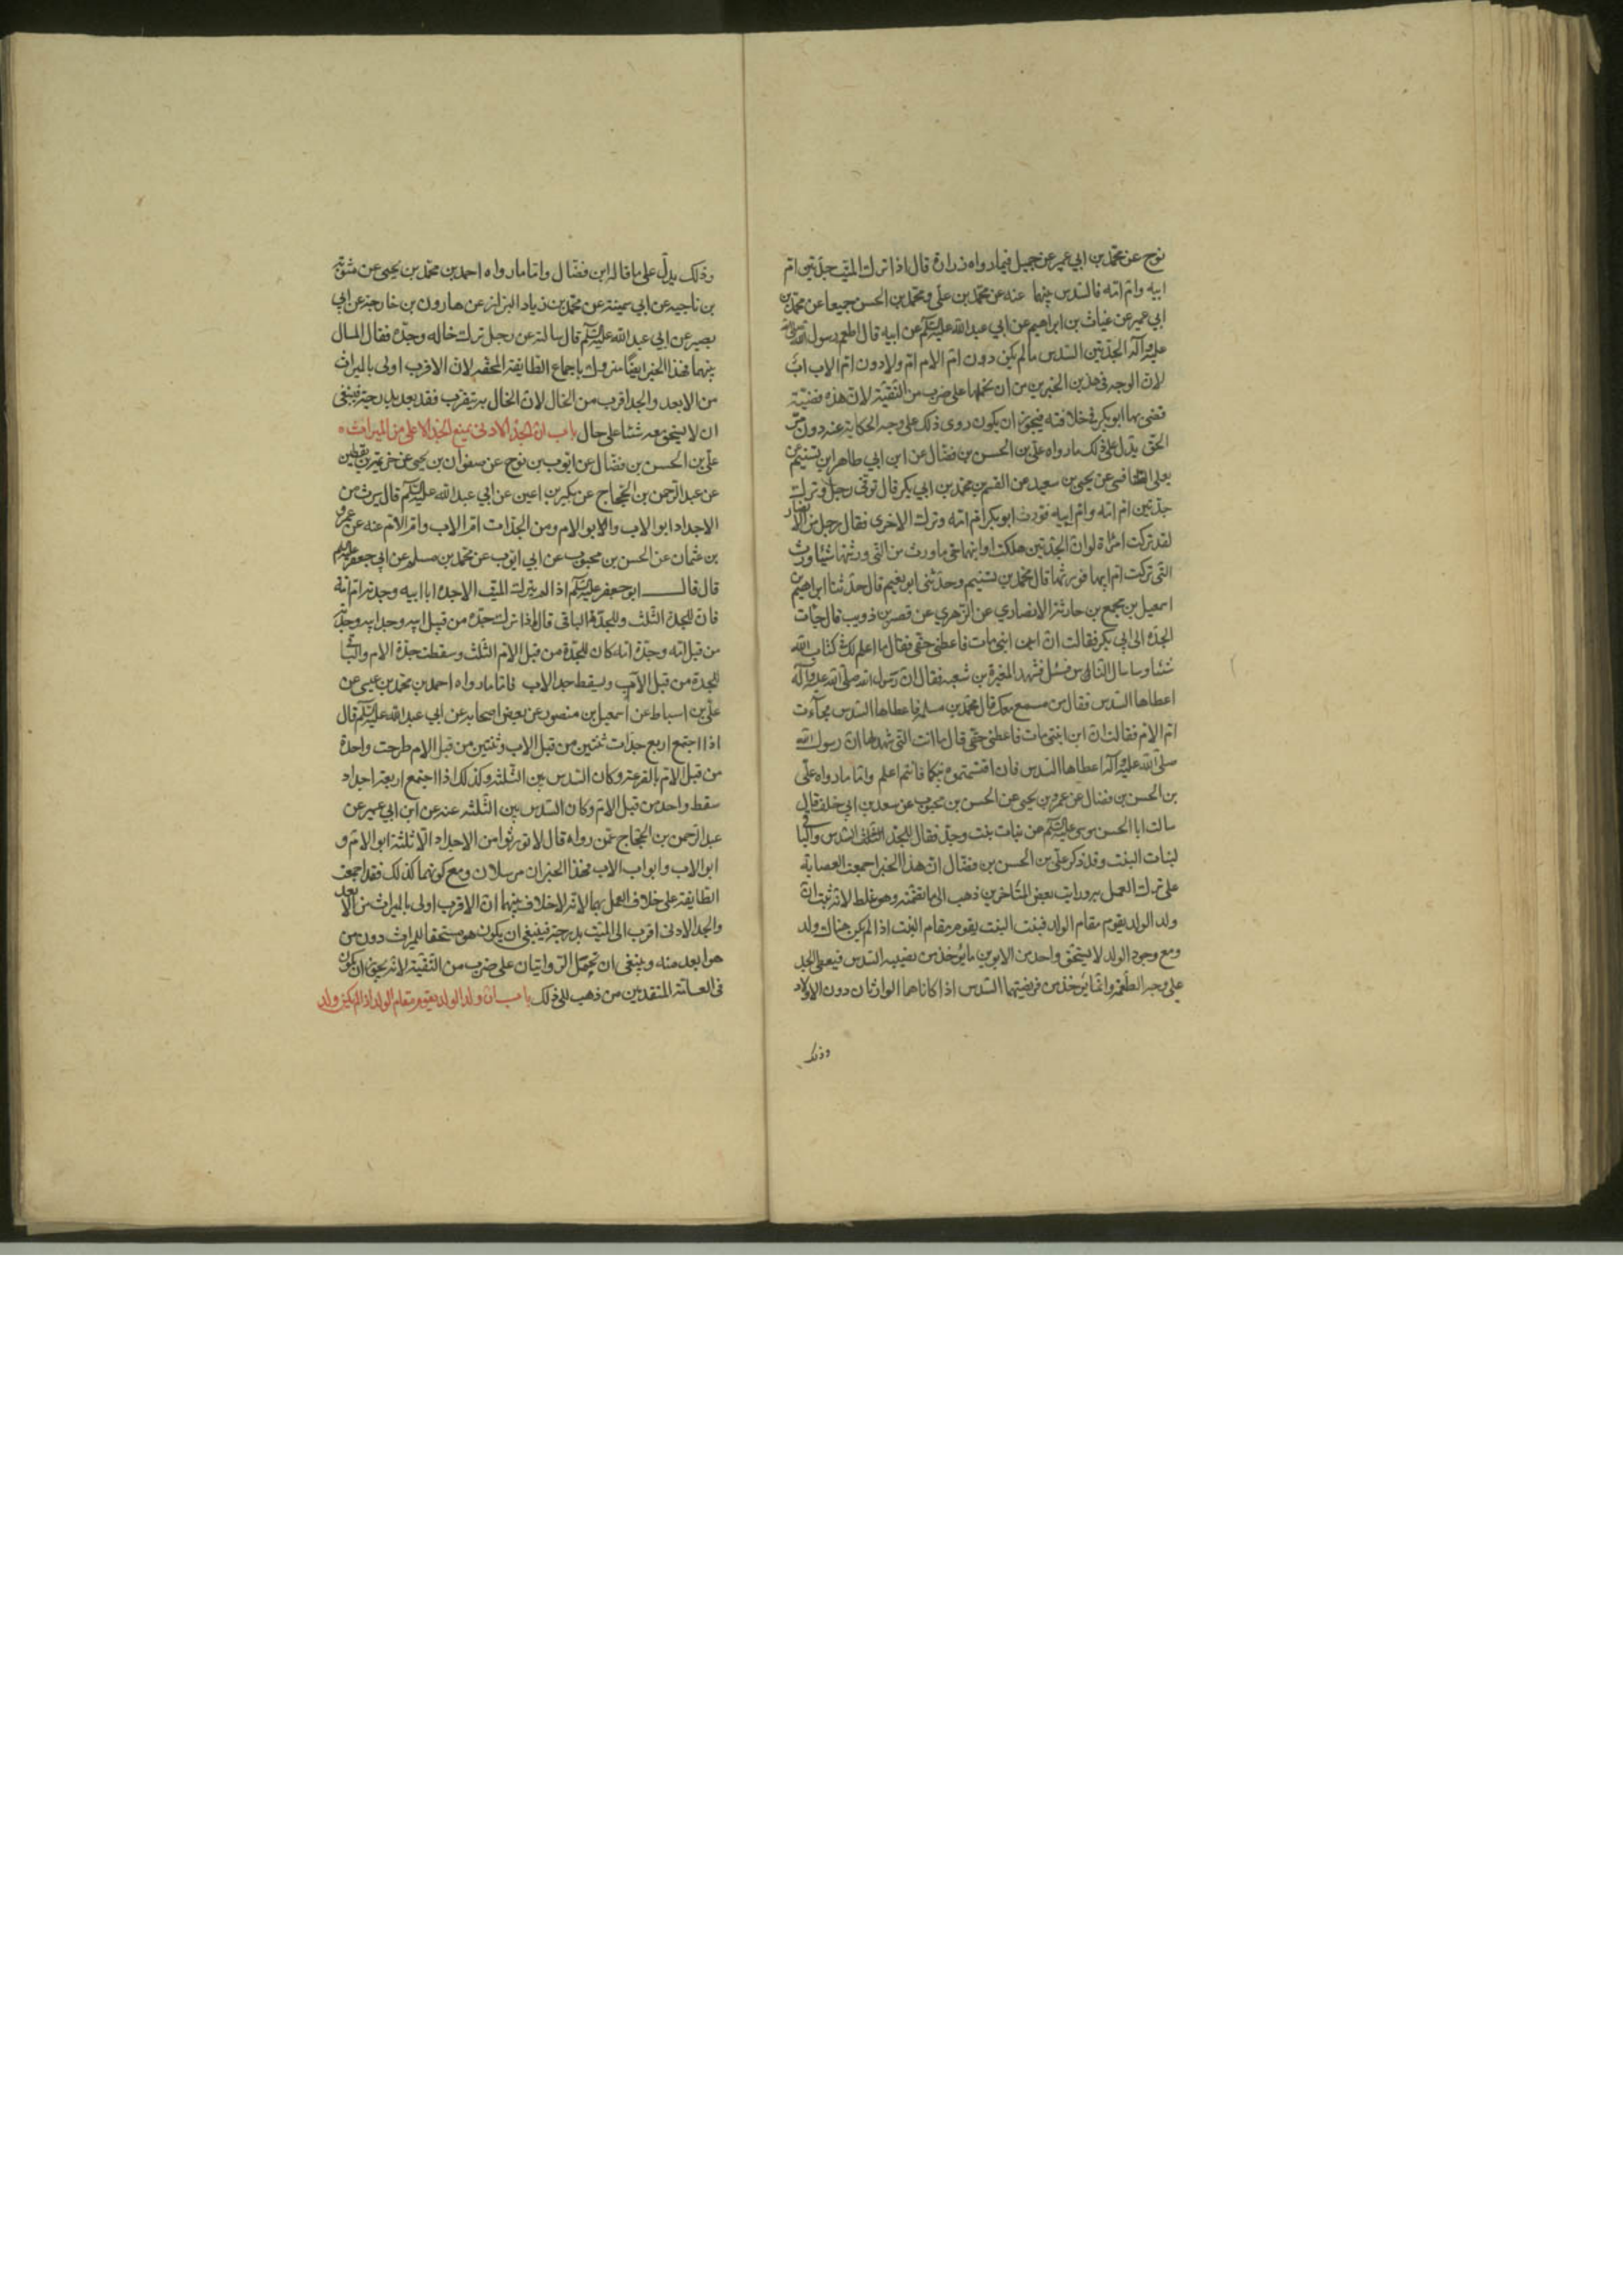 نوح عن محمّد بن ابي عمير عن جميل فيما رواه زرارة قال اذا ترك الميّت جدّتين امّ
ابيه وامّ امّه فالسّدس بينهما عنه عن محمّد بن علي ومحمّد بن الحسن جميعا عن محمّد بن
ابي عمير عن غياث بن ابراهيم عن ابي عبد الله عليه السلم عن ابيه قال اطعم رسول الله صلى الله
عليه وآله الجدّتين السّدس ما لم يكن دون امّ الام امّ ولا دون امّ الاب اب
لان الوجه في هذين الخبرين من ان نحملها على ضرب من التّقيّة لان هذه قضيّة
قضى بها ابو بكر في خلافته فيجوز ان يكون روى ذلك على وجه الحكاية عنه دون
الحق يدل على ذلك ما رواه علي بن الحسن بن فضّال عن ابن ابي طاهر ابن تسنيم عن
يعلى الطنافسي عن يحيى بن سعيد عن القسم بن محمّد بن ابي بكر قال توفّى رجل وترك
جدّتين امّ امّه وامّ ابيه فورث ابو بكر امّ امّه وترك الاخرى فقال رجل من الانصار
لقد تركت امراة لو ان الجدّتين هلكتا وابنهما حى ما ورث من التى ورثتها شيئا وورث
التى تركت امّ ابيها فورثها قال محمّد بن تسنيم وحدّثنى ابو نعيم قال حدّثنا ابراهيم بن
اسمعيل بن مجمع بن حارثة الانصاري عن الزهري عن قصير بن ذويب قال جائت
الجدّة الى ابي بكر فقالت ان ابن ابنى مات فاعطنى حقى فقال ما اعلم لك في كتاب الله
شئا وساسال النّاس فسئل فشهد المغيرة بن شعبه فقال ان رسول الله صلّى الله عليه وآله
اعطاها السّدس فقال من سمع معك قال محمّد بن مسلمه فاعطاها السّدس فجآءت
امّ الام فقالت ان ابن ابنتى مات فاعطنى حقى قال ما انت التى شهد لها ان رسول الله
صلّى الله عليه وآله اعطاها السّدس فان اقتسمتموه بينكما فانتم اعلم وامّا ما رواه علّى
بن الحسن بن فضال عن عمرو بن يحيى عن الحسن بن محبوب عن سعد بن ابي خلف قال
سالت ابا الحسن موسى عليه السلم عن بنات بنت وجدّ فقال للجدّ السّدس والباقي
لبنات البنت وقد ذكر علي بن الحسن بن فضّال ان هذا الخبر اجمعت العصابة
على ترك العمل به ورايت بعض المتاخرين ذهب الى ما تضمّنه وهو غلط لانّه ثبت ان
ولد الولد يقوم مقام الولد فبنت البنت يقوم مقام البنت اذا لم يكن هناك ولد
ومع وجود الولد لا يستحق واحد من الابوين ما يؤخذ من نصيبه السّدس فيعطى الجد
على وجه الطّعمة وانّما يؤخذ من فريضتهما السّدس اذا كانا هما الوارثان دون الاولاد
وذلك
وذلك يدلّ على ما قاله ابن فضّال وامّا ما رواه احمد بن محمّد بن يحيى عن
بن ناجيه عن ابي سمينة عن محمّد بن زياد البزاز عن هارون بن خارجة عن ابي
بصير عن ابي عبد الله عليه السلم قال سالته عن رجل ترك خاله وجدّه فقال المال
بينهما فهذا الخبر ايضًا متروك باجماع الطّايفة المحقّه لان الاقرب اولى بالميراث
من الابعد والجد اقرب من الخال لان الخال به يتقرب فقد بعد بدرجة فينبغى
ان لا يستحق معه شئا على حال باب ان الجدّ الادنى يمنع الجدّ الاعلى من الميراث
علي بن الحسن بن فضّال عن ايّوب بن نوح عن صفوان بن يحيى عن خزيمة بن يقطين
عن عبد الرّحمن بن الحجّاج عن بكير بن اعين عن ابي عبد الله عليه السلم قال يرث من
الاجداد ابو الاب وابو الام ومن الجدّات امّ الاب وامّ الامّ عنه عن عمرو
بن عثمان عن الحسن بن محبوب عن ابي ايّوب عن محمّد بن مسلم عن ابي جعفر عليه السلم
قال قال ابو جعفر عليه السلم اذا لم يترك الميّت الا جدّه ابا ابيه وجدّته امّ امّه
فان للجدة الثّلث وللجدّ الباقى قال اذا ترك جدّه من قبل ابيه وجد ابيه وجدّته
من قبل امّه وجدّة امّه كان للجدّة من قبل الامّ الثّلث وسقطت جدّة الام والباقي
للجدة من قبل الاب وسقط جد الاب فامّا ما رواه احمد بن محمّد بن عيسى عن
علّي بن اسباط عن اسمعيل بن منصور عن بعض اصحابه عن ابي عبد الله عليه السلم قال
اذا اجتمع اربع جدّات ثنتين من قبل الاب وثنتين من قبل الام طرحت واحدة
من قبل الامّ بالقرعة وكان السّدس بين الثّلثة وكذلك اذا اجتمع اربعة اجداد
سقط واحد من قبل الامّ وكان السّدس بين الثّلثه عنه عن ابن ابي عمير عن
عبد الرّحمن بن الحجّاج عمّن رواه قال لا تورثوا من الاجداد الّا ثلثة ابو الامّ و
ابو الاب وابو اب الاب فهذا الخبران مرسلان ومع كونهما كذلك فقد اجمعت
الطّايفة على خلاف العمل بهما لانّه لا خلاف بينهما ان الاقرب اولى بالميراث من الابعد
والجد الادنى اقرب الى الميّت بدرجة فينبغى ان يكون هو مستحقا للميراث دون من
هو ابعد منه وينبغى ان تحمل الرّوايتان على ضرب من التّقيّة لانّه يجوز ان يكون
فى العامّة المتقدّمين من ذهب الى ذلك باب ان ولد الولد يقوم مقام الولد اذا لم يكن ولد